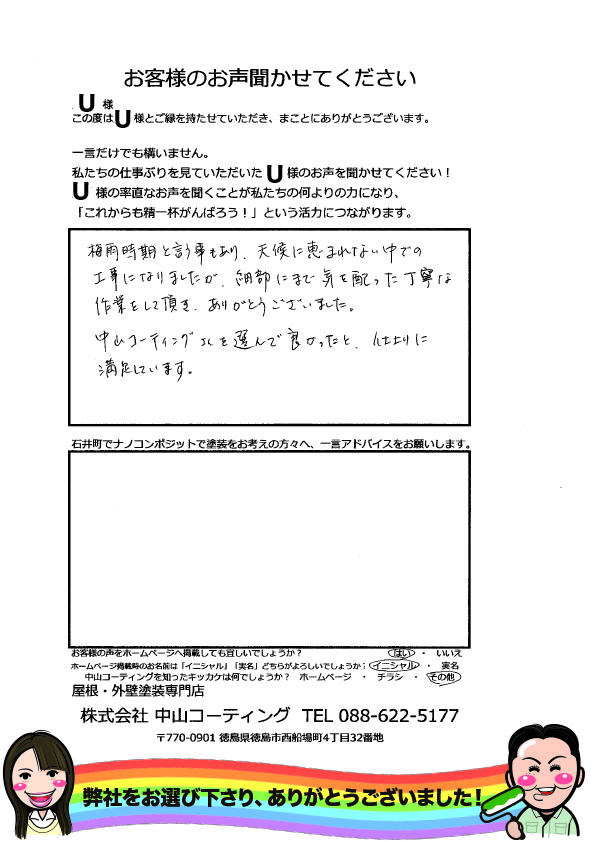 お客様のお声聞かせてください
U 様
この度はU様とご縁を持たせていただき、まことにありがとうございます。
一言だけでも構いません。
私たちの仕事ぶりを見ていただいた U 様のお声を聞かせてください！
U 様の率直なお声を聞くことが私たちの何よりの力になり、
「これからも精一杯がんばろう！」という活力につながります。
梅雨時期と言う事もあり、天候に恵まれない中での
工事になりましたが、細部にまで気を配った丁寧な
作業をして頂き、ありがとうございました。
中山コーティングさんを選んで良かったと、仕上りに
満足しています。
石井町でナノコンポジットで塗装をお考えの方々へ、一言アドバイスをお願いします。
お客様の声をホームページへ掲載しても宜しいでしょうか？ はい ・ いいえ
ホームページ掲載時のお名前は「イニシャル」「実名」どちらがよろしいでしょうか？ イニシャル ・ 実名
中山コーティングを知ったキッカケは何でしょうか？ ホームページ ・ チラシ ・ その他
屋根・外壁塗装専門店
株式会社 中山コーティング TEL 088-622-5177
〒770-0901 徳島県徳島市西船場町4丁目32番地
弊社をお選び下さり、ありがとうございました！